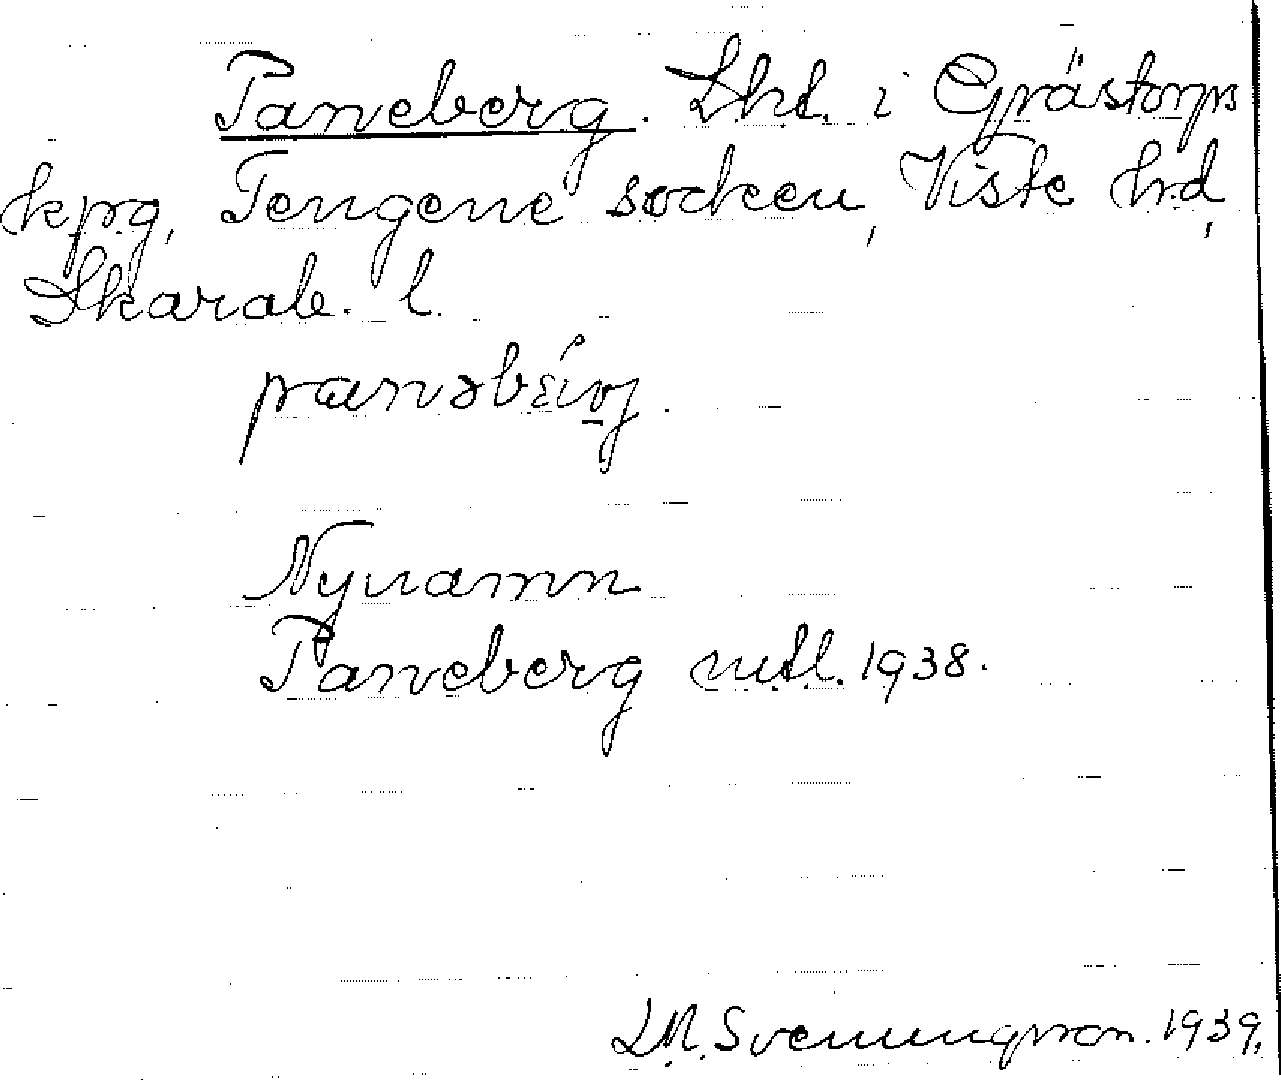 Paneberg. Lht. i Grästorps
kpg, Tengene socken, Viste hd,
Skarab. l.
panəbǽrj.
Nynamn
Paneberg mtl. 1938.
Svenungsson. 1939.